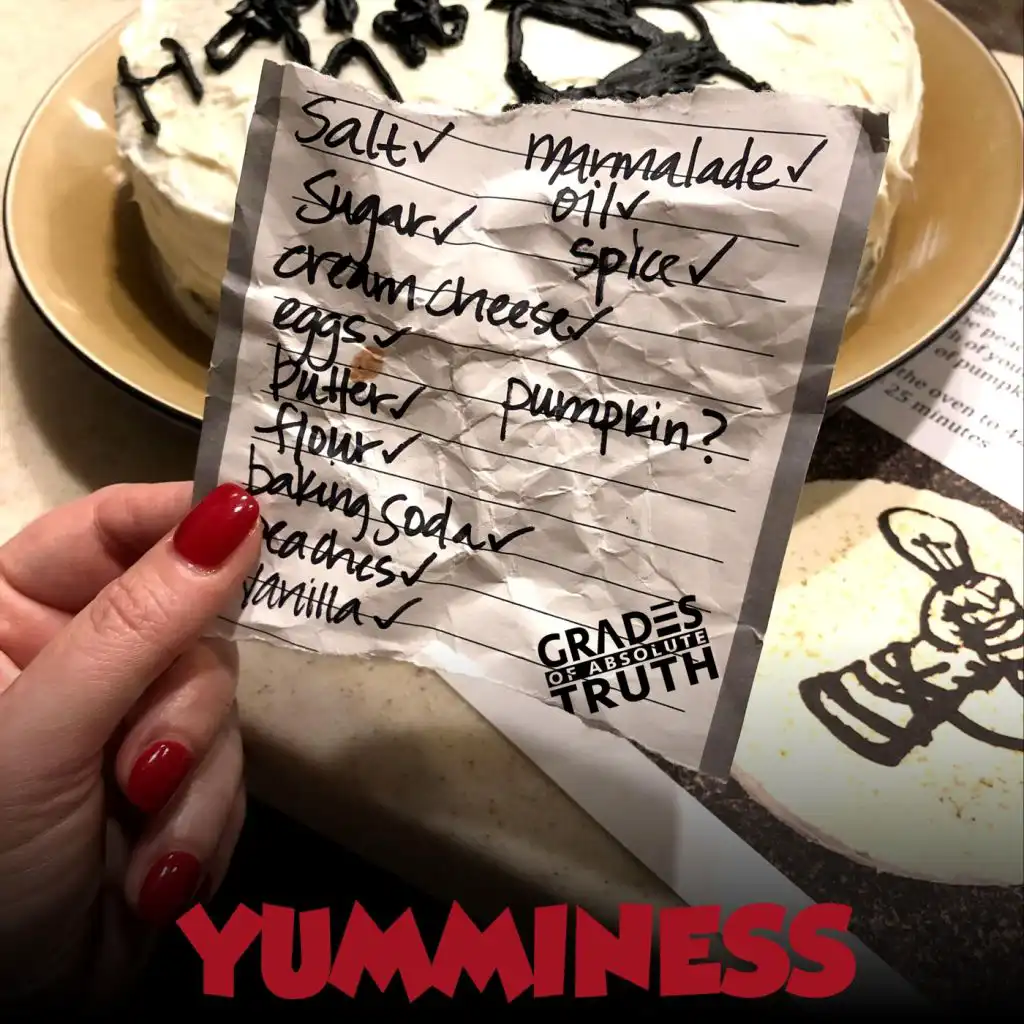 Salt✓
Sugar✓
cream cheese✓
eggs✓
butter✓
flour✓
baking soda✓
peaches✓
vanilla✓
marmalade✓
oil✓
spice✓
pumpkin?
GRADES
OF ABSOLUTE
TRUTH
of pumpk
the oven to 42
25 minutes
YUMMINESS